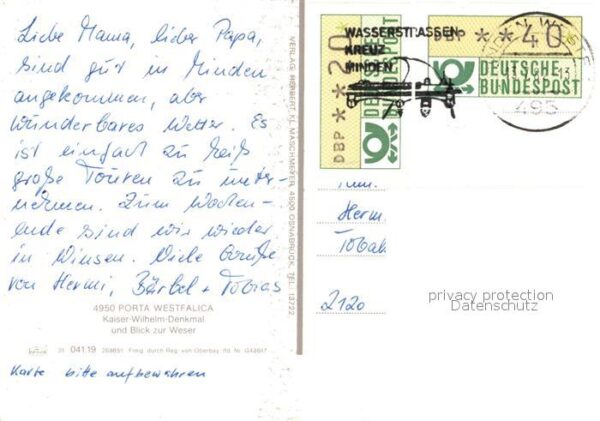 Liebe Mama, lieber Papa,
sind gut in Minden
angekommen, aber
wunderbares Wetter. Es
ist einfach zu heiß
große Touren zu unter-
nehmen. Zum Wochen-
ende sind wir wieder
in Winsen. Viele Grüße
von Hermi, Bärbel + Tobias
4950 PORTA WESTFALICA
Kaiser-Wilhelm-Denkmal
und Blick zur Weser
31 041.19 Freig. durch Reg. von Oberbay.
Karte bitte aufbewahren
VERLAG HERBERT KL. MASCHMEYER, 4500 OSNABRÜCK, TEL. 13722
WASSERSTRASSEN-
KREUZ
MINDEN
DBP * * 20
DEUTSCHE
BUNDESPOST
DBP * * 40
DEUTSCHE
BUNDESPOST
495
Herm.
2120
privacy protection
Datenschutz